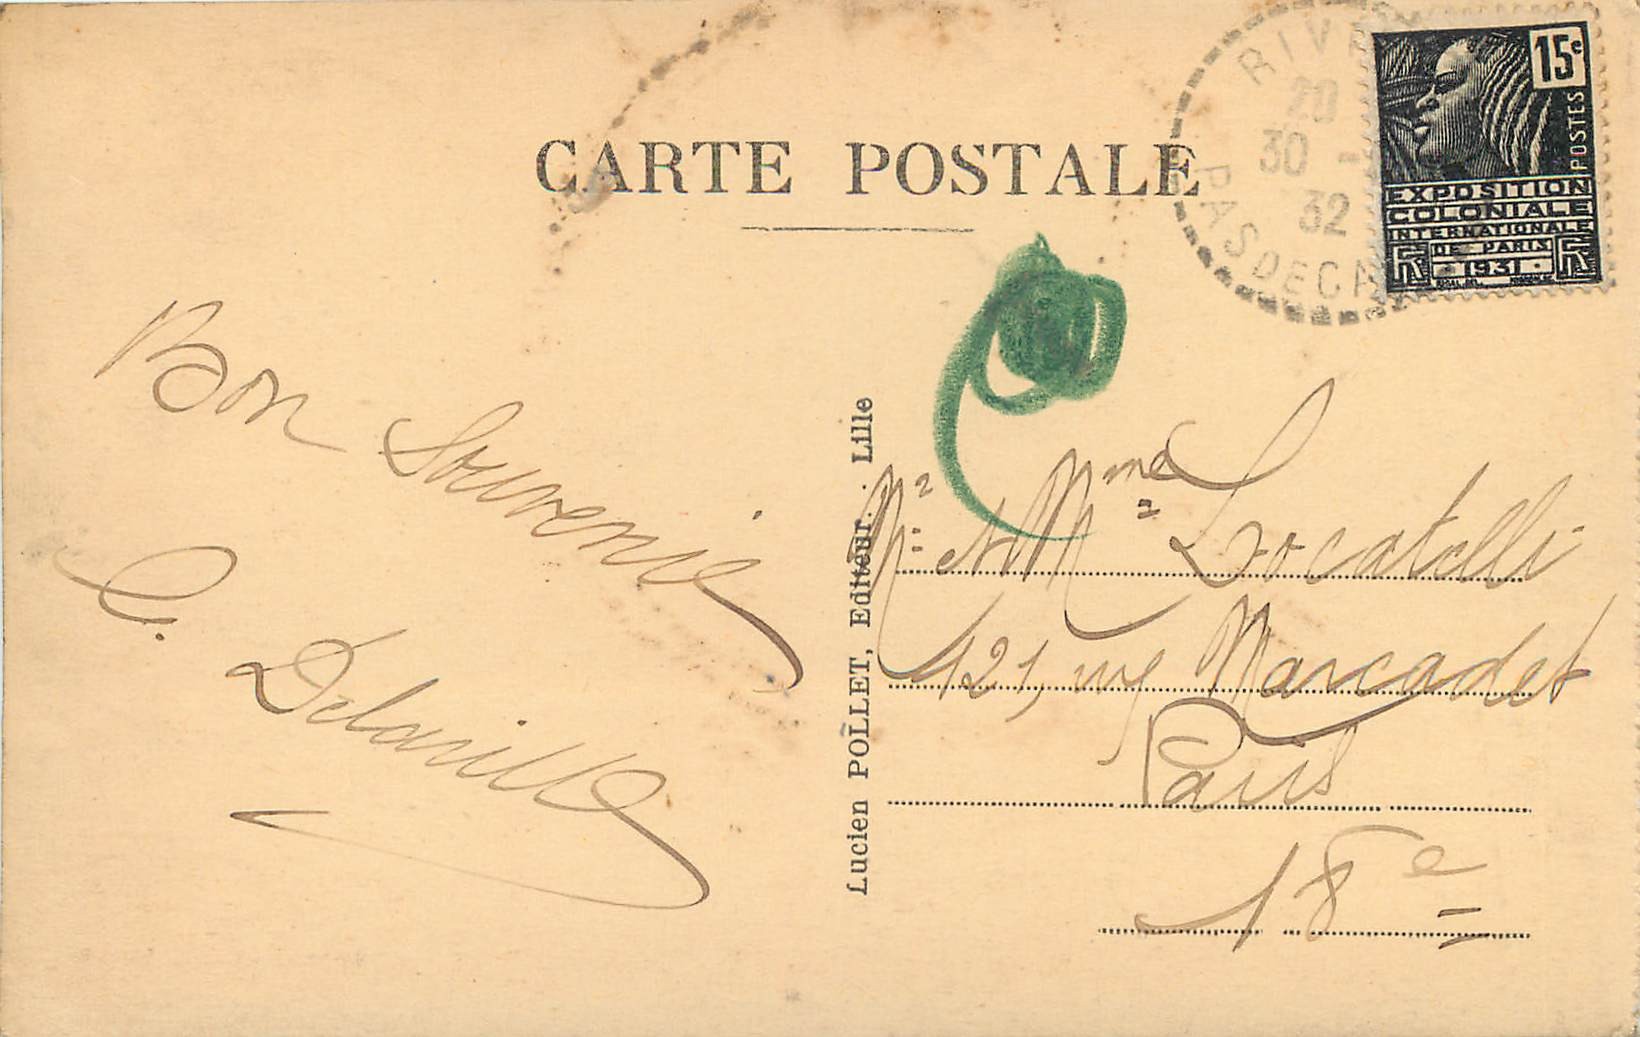 CARTE POSTALE
RIV
20
30 -
32
PAS DE CA
15c
POSTES
EXPOSITION
COLONIALE
INTERNATIONALE
DE PARIS
1931
RF RF
Bon Souvenir
C. Delaville
Lucien POLLET, Editeur. Lille
Mr et Mme Locatelli
121, rue Marcadet
Paris
18e